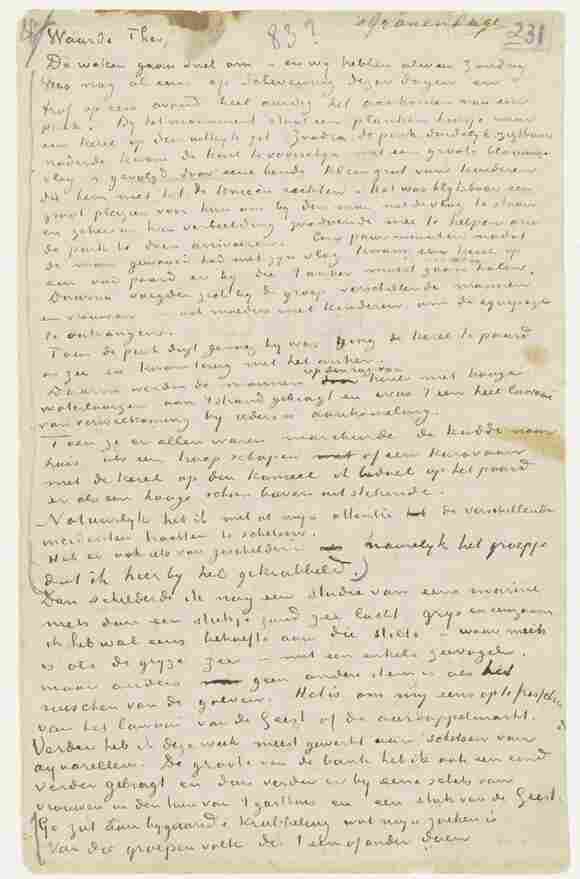 's Gravenhage
231
Waarde Theo, 83?
De weken gaan snel om – en wij hebben alweer Zondag
Was nog al eens op Scheveningen dezer dagen en
trof op een avond heel aardig het aankomen van een
pink. Bij het monument staat een planken huisje waar
een kerel op den uitkijk zit. Zoodra de pink duidelijk zigtbaar
naderde kwam de kerel te voorschijn met een groote blaauwe
vlag gevolgd door eene bende klein grut van kinderen
die hem niet tot de knieën reikten. Het was blijkbaar een
groot plezier voor hun om bij den man met de vlag te staan
en zoodoende mee te helpen om
de pink te doen arriveeren. Een paar minuten nadat
de man gewuifd had met zijn vlag kwam een kerel op
een oud paard er bij die 't anker moest gaan halen.
Daarna voegden zich bij de groep verschillende mannen
en vrouwen ook moeders met kinderen om de equipage
te ontvangen.
Toen de pink digt genoeg bij was ging de kerel te paard
in zee en kwam terug met het anker.
Daarna werden de mannen op den rug van kerels met hooge
waterlaarzen aan 't strand gebragt en was 't een heel lawaai
van verwelkoming bij iedere aanhaling.
Toen ze er allen waren marcheerde de kudde naar
huis als een troep schapen of een karavaan
met de kerel op den kameel ik bedoel op het paard
er als een hooge schim boven uitstekende.
– Natuurlijk heb ik met al mijn attentie de verschillende
incidenten trachten te schetsen.
Heb er ook iets van geschilderd namelijk het groepje
dat ik hier bij heb gekrabbeld.)
Dan schilderde ik nog een studie van eene marine
niets dan een stukje zand zee lucht grijs en eenzaam
ik heb wel eens behoefte aan die stilte – waar niets
is als de grijze zee – met een enkele zeevogel.
maar anders geen andere stem is als het
ruischen van de golven. Het is om mij eens op te frisschen
van het lawaai van de Geest of de aardappelmarkt.
Verder heb ik deze week meest gewerkt aan schetsen van
aquarellen. De groote van de bank heb ik ook een eind
verder gebragt en dan verder er bij eene schets van
vrouwen in den tuin van 't gasthuis en een stuk van de Geest.
Ge zult aan bijgaande krabbeling wat mijn zoeken is
Van die groepen volk die 't een of ander doen